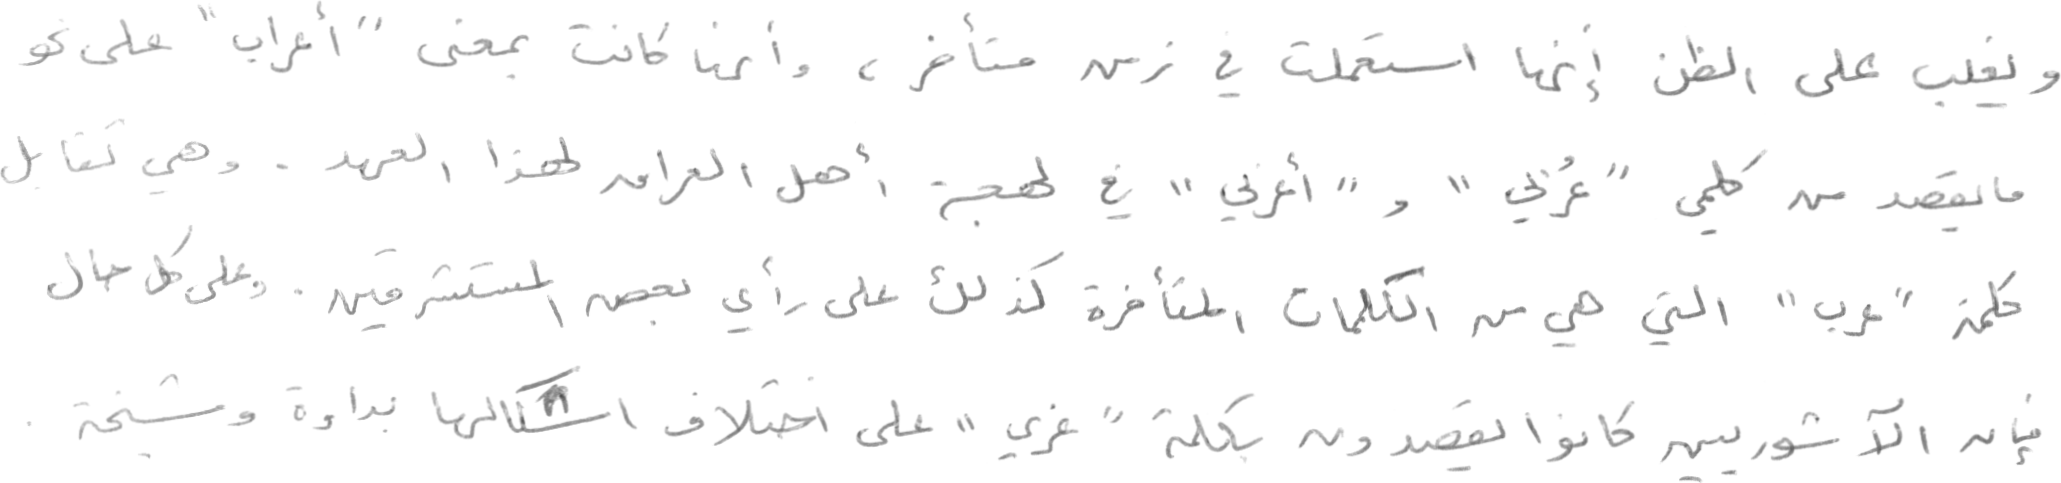 ويغلب على الظن إنها استعملت في زمن متأخر، وأنها كانت بمعنى "أعراب" على نحو
ما يقصد من كلمتي "عُربي" و "أعربي" في لهجة أهل العراق لهذا العهد. وهي تقابل
كلمة "عرب" التي هي من الكلمات المتأخرة كذلك على رأي بعض المستشرقين. وعلى كل حال
فإن الآشوريين كانوا يقصدون بكلمة "عربي" على اختلاف اشكالها بداوة ومشيخة.